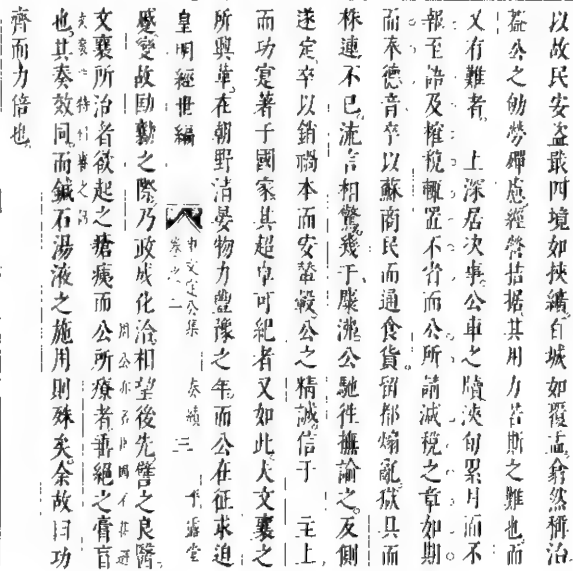 以故民安盜戢四境如挾纊百城如覆盂翕然稱治
葢公之劬勞殫慮經營拮据其用力若斯之難也而
又有難者 上深居決事公車之牘浹旬累月而不
報至語及榷稅輒置不省而公所請減稅之章如期
而奉德音卒以蘇商民而通食貨留都煽亂獄具而
株連不已流言相驚幾于麋沸公馳往撫諭之反側
遂定卒以銷禍本而安輦轂公之精誠信于 主上
而功寔著于國家其超卓可紀者又如此夫文襄之
所興革在朝野清晏物力豐豫之年而公在征求迫
皇明經世編 申文定公集 卷之二 奏績 三 平露堂
蹙變故動勷之際乃政成化洽相望後先譬之良醫
文襄所治者欲起之瘡痍而公所療者垂絕之膏肓
也其奏效同而鍼石湯液之施用則殊矣余故曰功
齊而力倍也